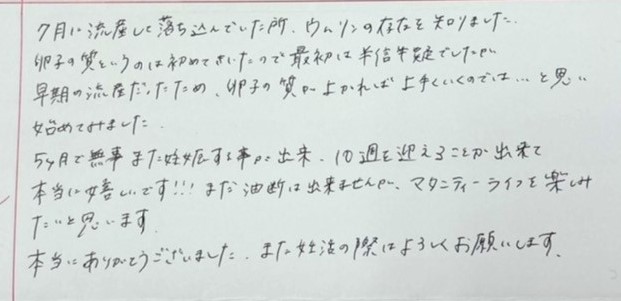 7月に流産して落ち込んでいた所、ウムリンの存在を知りました。
卵子の質というのは初めてきいたので最初は半信半疑でしたが、
早期の流産だったため、卵子の質がよければ上手くいくのでは…と思い
始めてみました。
5ヶ月で無事また妊娠する事が出来、10週を迎えることが出来て
本当に嬉しいです!!! まだ油断は出来ませんが、マタニティーライフを楽しみ
たいと思います。
本当にありがとうございました。また妊活の際はよろしくお願いします。